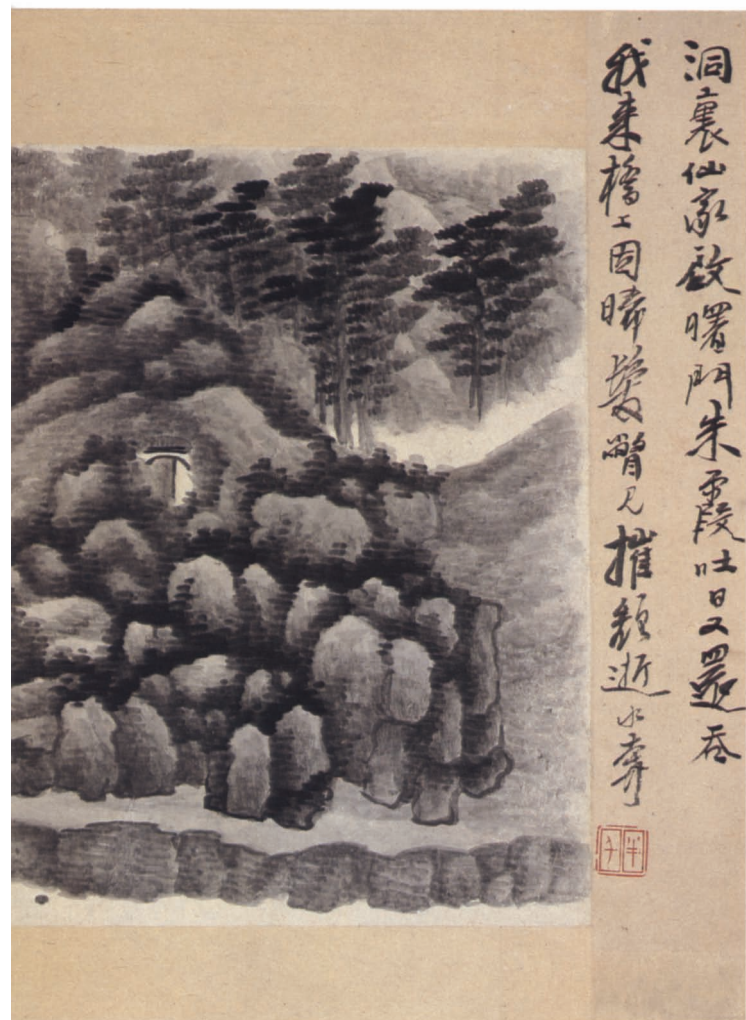 洞裏仙家啟曙門朱霞吐日又還吞
我来橋上因晞髮瞥見摧頹逝水奔
半千